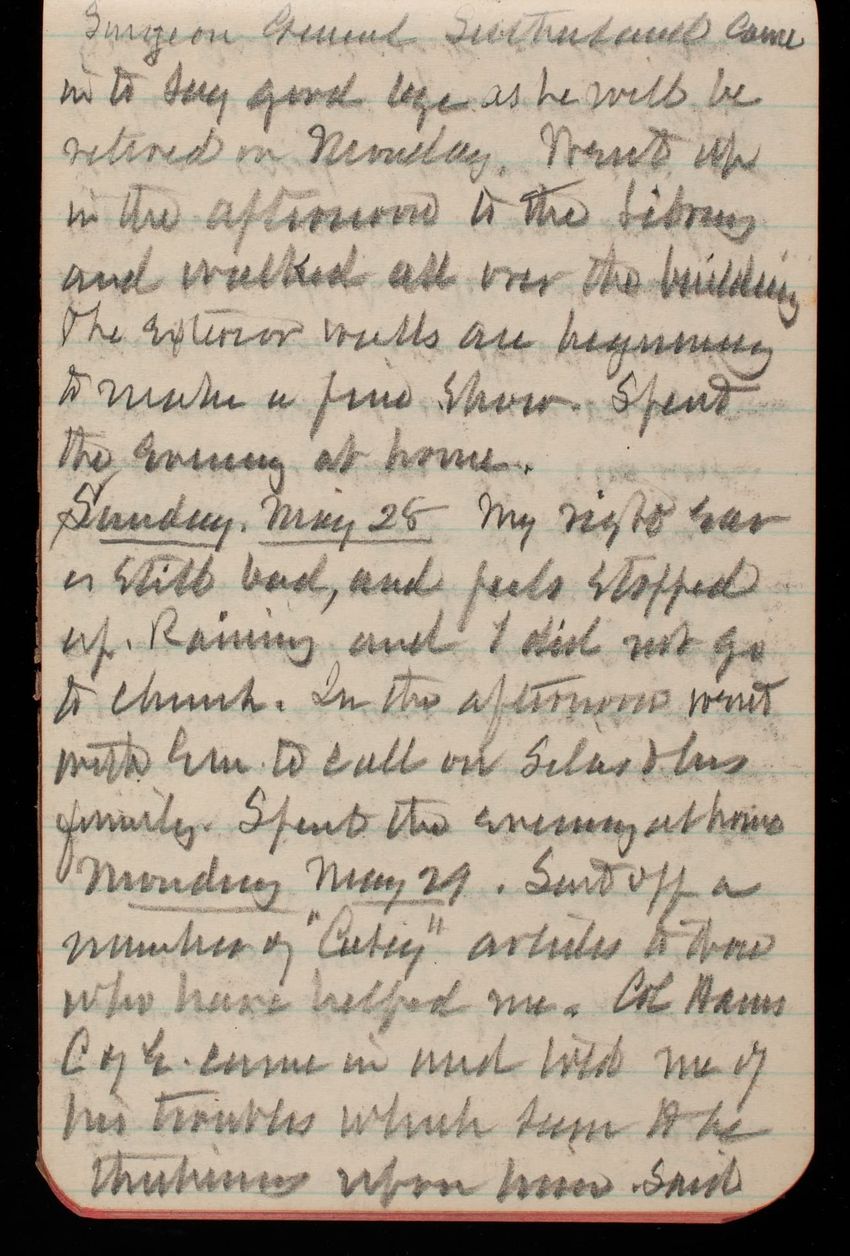 Surgeon General Sutherland came
in to say good bye as he will be
retired on Monday. Went up
in the afternoon to the Library
and walked all over the building
The exterior walls are beginning
to make a fine show. Spent
the evening at home.
Sunday. May 28 My right ear
is still bad, and feels stopped
up. Raining and I did not go
to church. In the afternoon went
with Em. to call on Silas & his
family. Spent the evening at home
Monday May 29. Sent off a
number of articles to those
who have helped me. Col Hains
C of E. came in and told me of
his troubles which seem to be
upon him. Said